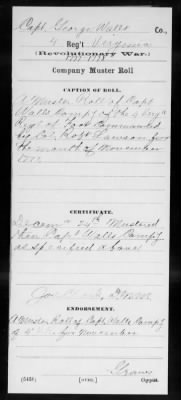 Capt. George Walls Co.,
4 Reg't Virginia
(Revolutionary War.)
1777 1778
Company Muster Roll
CAPTION OF ROLL.
A Muster Roll of Capt
Walls Compy of the 4 Virga
Regt of Foot Commanded
by Col. Robt Lawson for
the month of November
CERTIFICATE.
Decem 24th Mustered
then Capt Walls Compy
as specified above
ENDORSEMENT.
A Muster Roll of Capt Walls Compy
of November
Graves
(545i) Copyist.